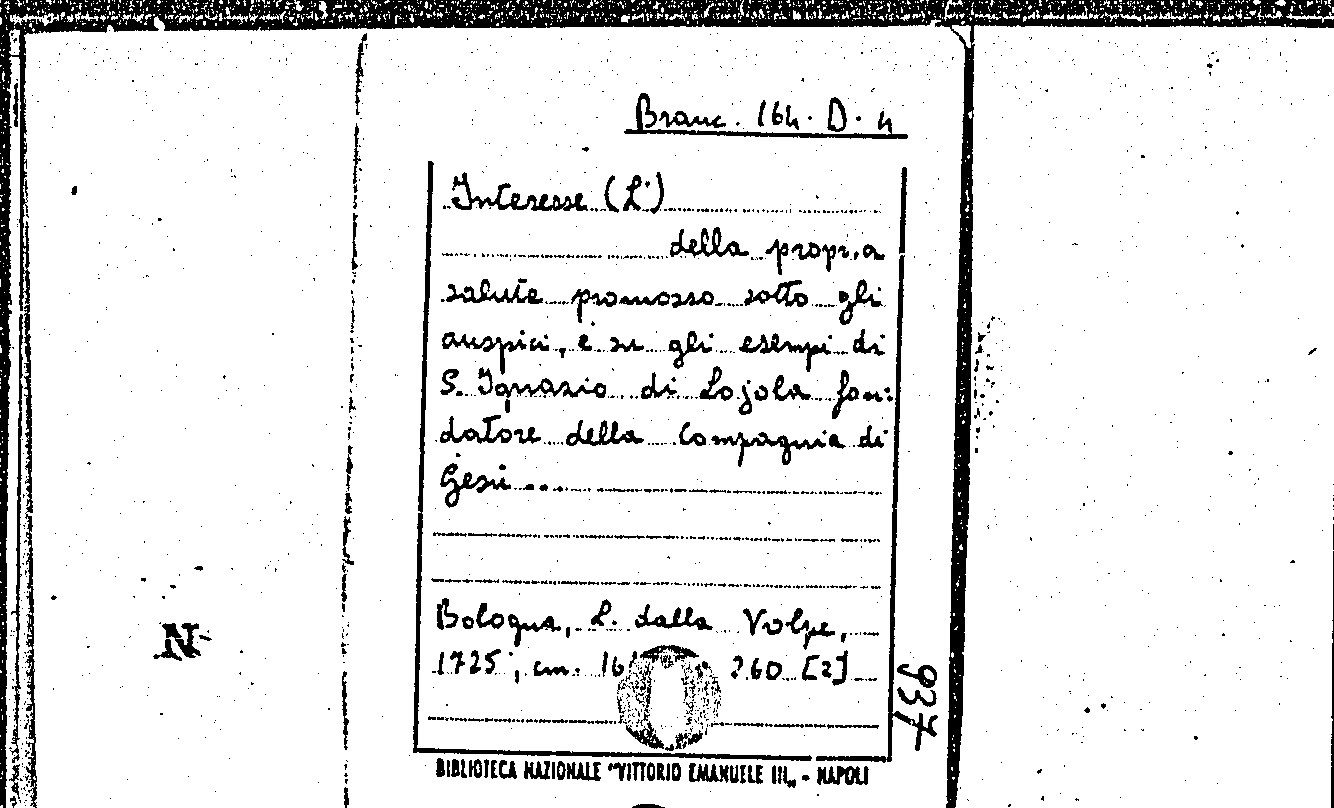 Branc. 164. D. 4
Interesse (L')
della propria
salute promosso sotto gli
auspici, e su gli esempi di
S. Ignazio di Lojola fon:
datore della Compagnia di
Gesù...
Bologna, L. dalla Volpe,
1725, cm. 260 [2]
937
N
BIBLIOTECA NAZIONALE "VITTORIO EMANUELE III„ - NAPOLI